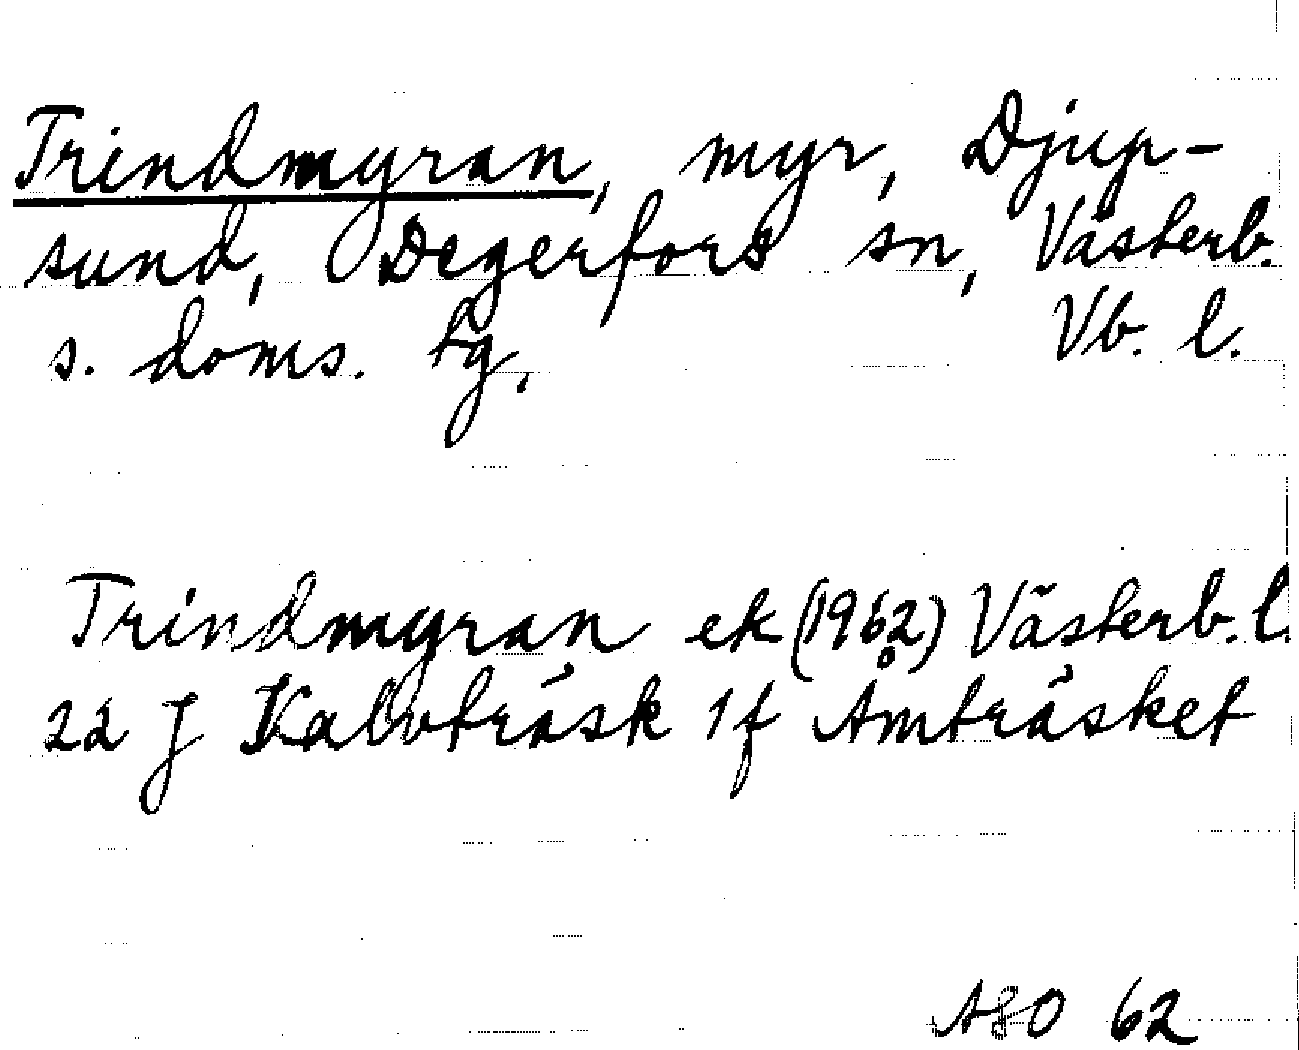 Trindmyran, myr, Djup-
sund, Degerfors sn, Västerb.
s. doms. hg, Vb. l.
Trindmyran ek (1962) Västerb. l.
22 J Kalvträsk 1f Åmträsket
ASO 62